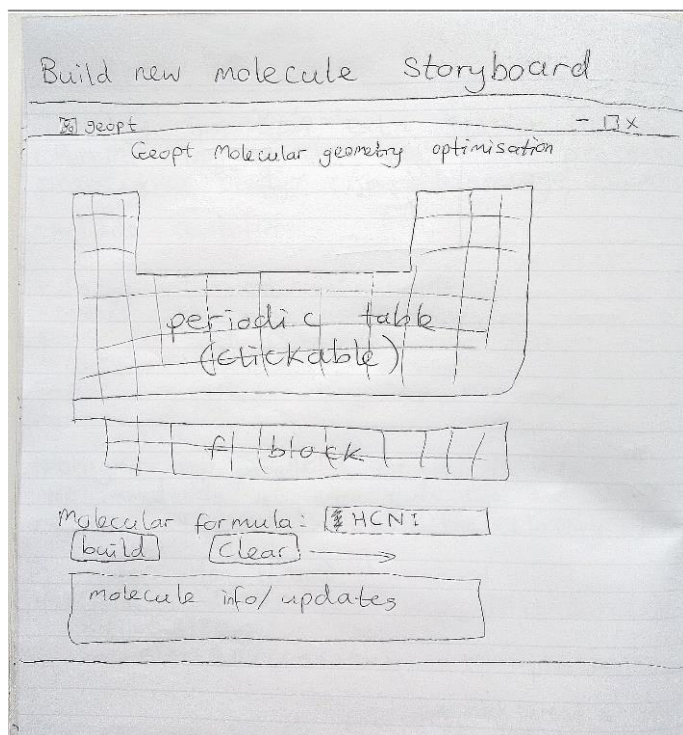 Build new molecule Storyboard
geopt - □ X
Geopt Molecular geometry optimisation
periodic table
(clickable)
f block
Molecular formula: HCNI
build Clear
molecule info/updates